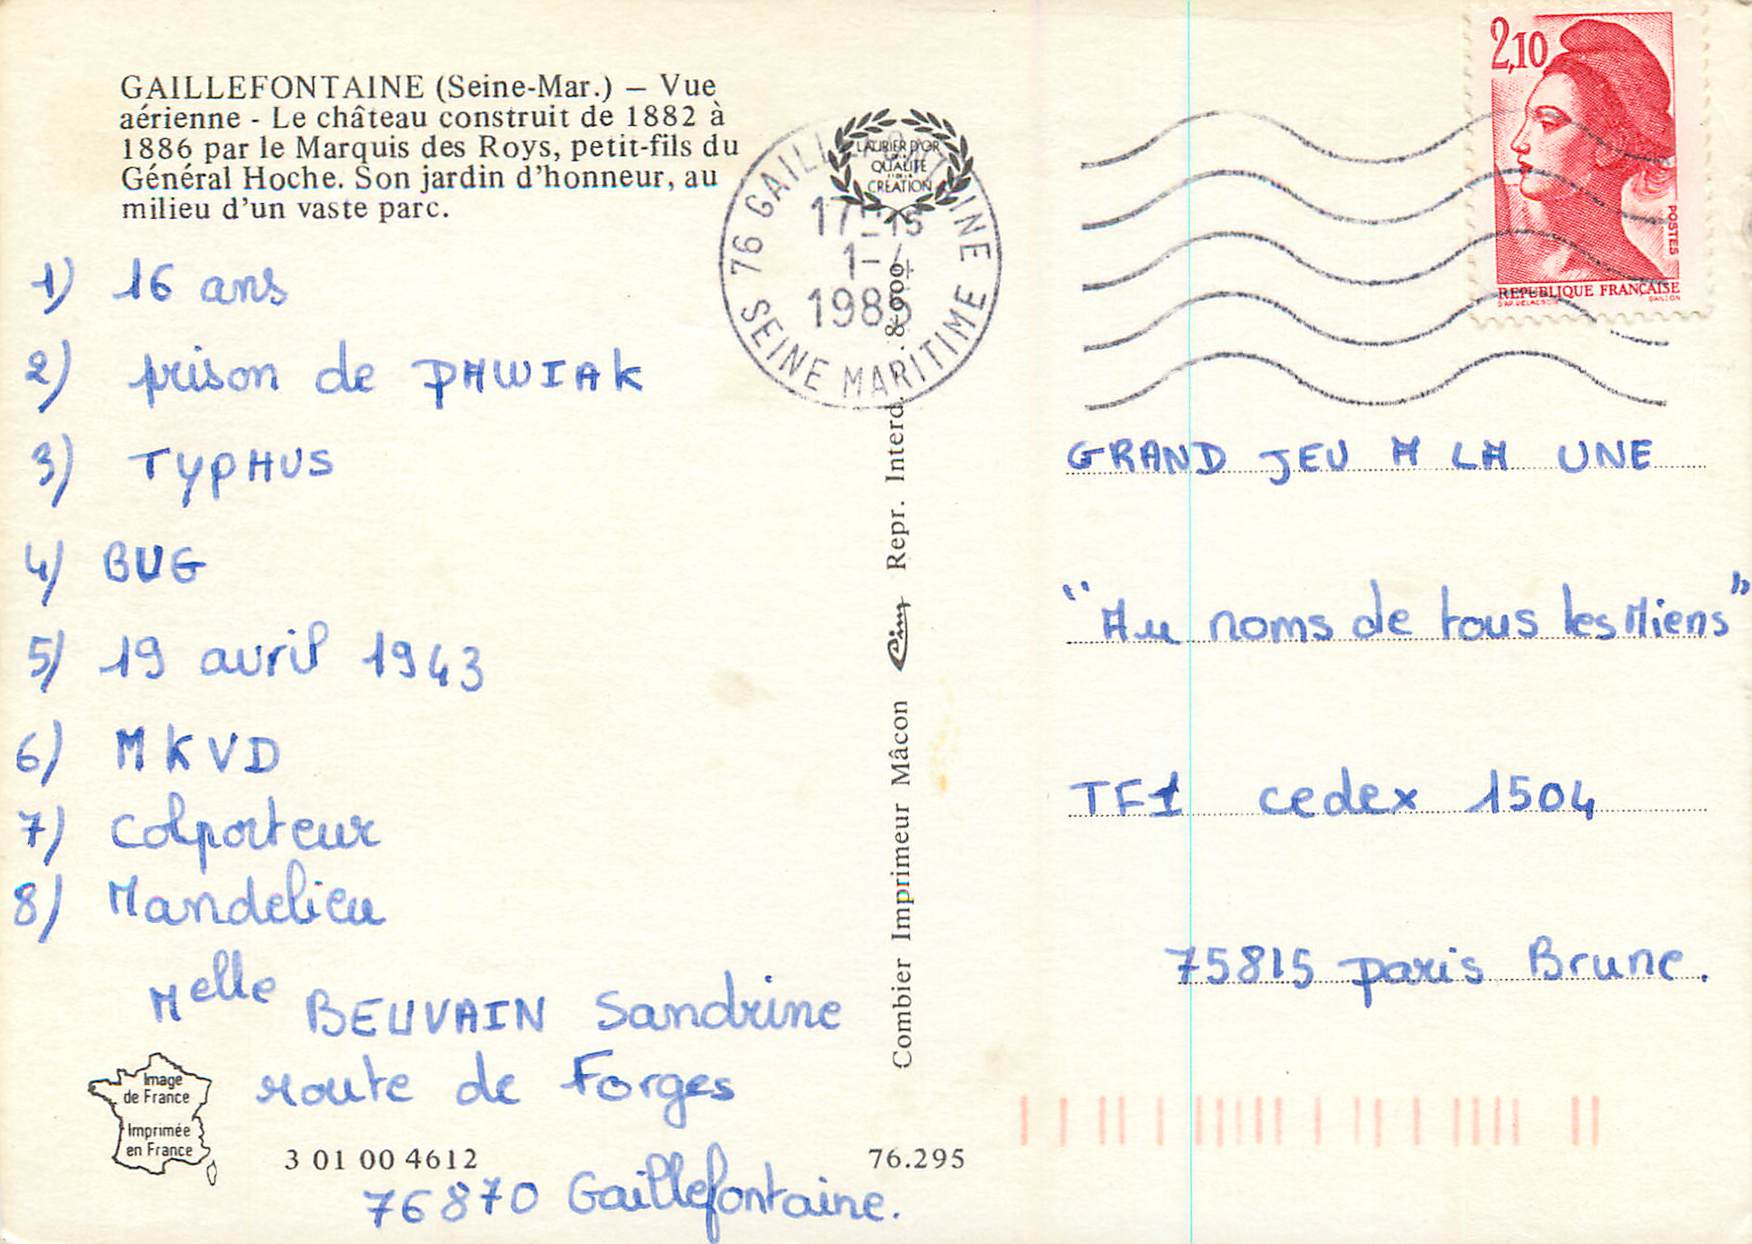 GAILLEFONTAINE (Seine-Mar.) – Vue
aérienne - Le château construit de 1882 à
1886 par le Marquis des Roys, petit-fils du
Général Hoche. Son jardin d'honneur, au
milieu d'un vaste parc.
1) 16 ans
2) prison de PAWIAK
3) TYPHUS
4) BUG
5) 19 avril 1943
6) NKVD
7) Colporteur
8) Mandelieu
Melle BEUVAIN Sandrine
route de Forges
76870 Gaillefontaine.
Image
de France
Imprimée
en France
3 01 00 4612
76.295
Combier Imprimeur Mâcon Cim Repr. Interd.
LAURIER D'OR
QUALITÉ
CRÉATION
76 GAILLEFONTAINE
17-15
1-4
1985
SEINE MARITIME
2,10
POSTES
REPUBLIQUE FRANÇAISE
GRAND JEU A LA UNE
"Au noms de tous les Miens"
TF1 cedex 1504
75815 paris Brune.